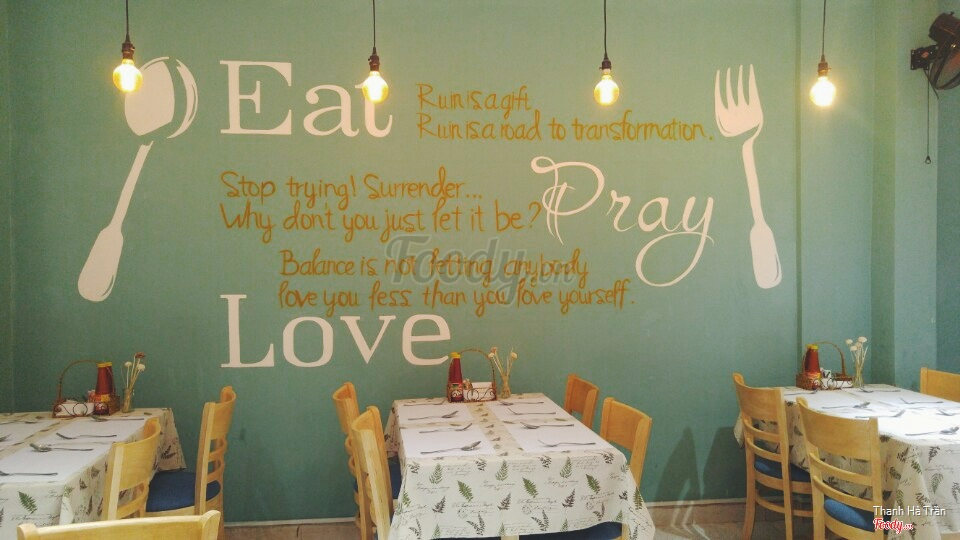 Eat
Ruin is a gift.
Ruin is a road to transformation.
Stop trying! Surrender...
Why don't you just let it be?
Pray
Balance is not letting anybody
love you less than you love yourself.
Love
Foody.vn
Thanh Hà Trần
Foody.vn